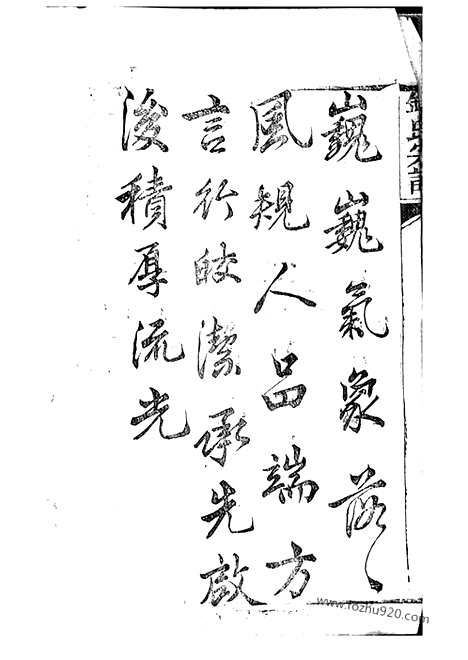 巍巍氣象落〻
風規人品端方
言行皎潔承先啟
後積厚流光
氏宗譜
www.fozhu920.com